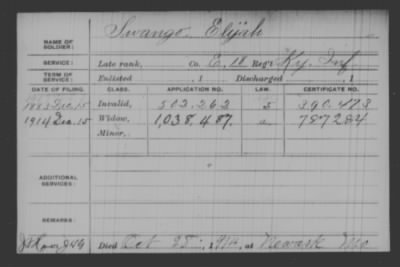 Swango, Elijah
NAME OF SOLDIER:
SERVICE: Late rank, Co. E, 11 Reg't Ky. Inf.
TERM OF SERVICE: Enlisted , 1 Discharged , 1
DATE OF FILING. CLASS. APPLICATION NO. LAW. CERTIFICATE NO.
Dec. 15 Invalid, 503.262 390.473
1914 Dec. 15 Widow, 1,038.487. 787284
Minor,
ADDITIONAL SERVICES:
REMARKS:
Died Oct 25, 1914, at Newark Mo